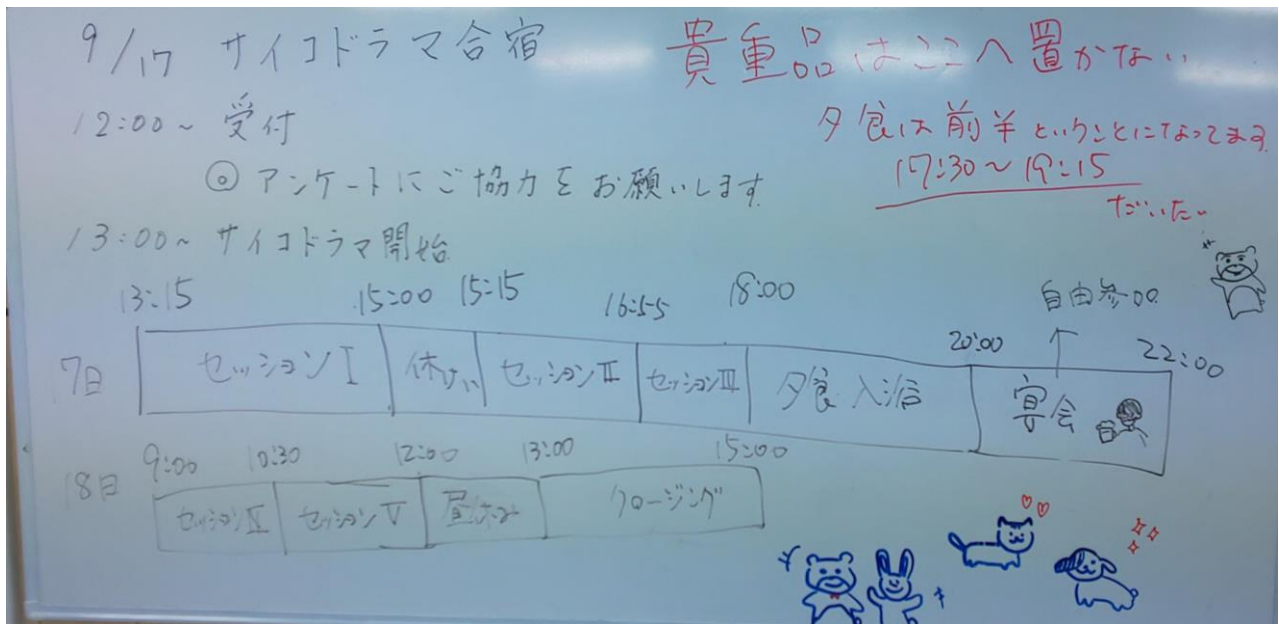 9/17 サイコドラマ合宿
貴重品はここへ置かない
12:00~ 受付
夕食は前半ということになってます。
17:30~19:15
だいたい
◎アンケートにご協力をお願いします。
13:00~ サイコドラマ開始
自由参加
13:15 15:00 15:15 16:55 18:00 20:00 22:00
17日 セッションⅠ 休けい セッションⅡ セッションⅢ 夕食 入浴 宴会
9:00 10:30 12:00 13:00 15:00
18日 セッションⅣ セッションⅤ 昼休み クロージング